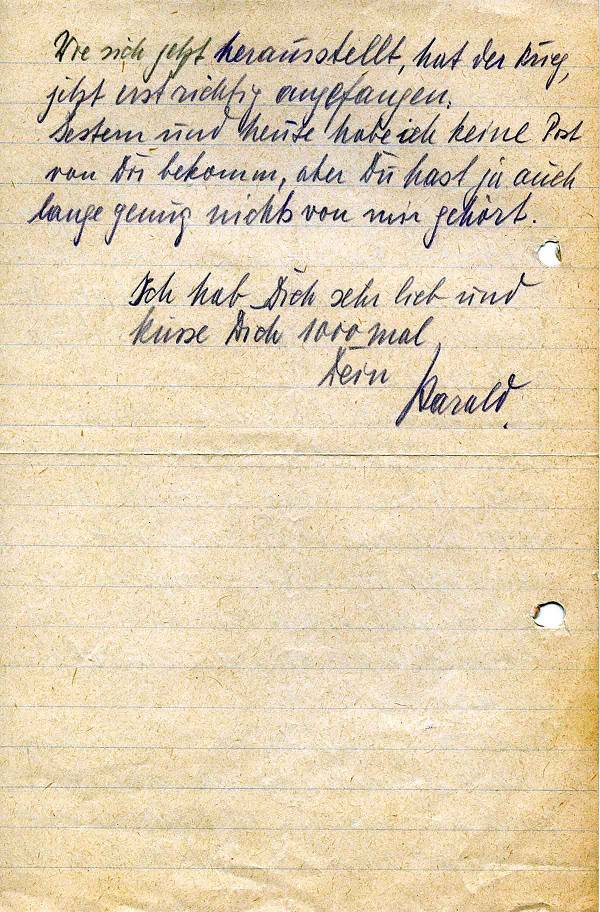 Wie sich jetzt herausstellt, hat der Krieg,
jetzt erst richtig angefangen.
Gestern und heute habe ich keine Post
von Dir bekomm, aber Du hast ja auch
lange genug nichts von mir gehört.
Ich hab Dich sehr lieb und
küsse Dich 1000 mal
Dein
Harald.